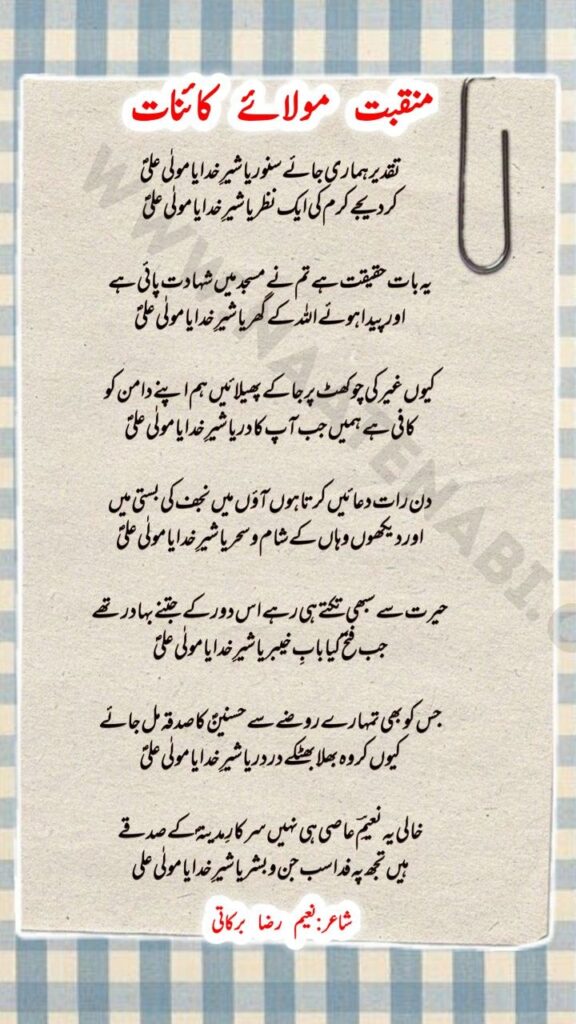 منقبت مولائے کائنات
تقدیر ہماری جائے سنور یا شیرِ خدا یا مولٰی علیؑ
کر دیجے کرم کی ایک نظر یا شیرِ خدا یا مولٰی علیؑ
یہ بات حقیقت ہے تم نے مسجد میں شہادت پائی ہے
اور پیدا ہوئے اللہ کے گھر یا شیرِ خدا یا مولٰی علیؑ
کیوں غیر کی چوکھٹ پر جا کے پھیلائیں ہم اپنے دامن کو
کافی ہے ہمیں جب آپ کا در یا شیرِ خدا یا مولٰی علیؑ
دن رات دعائیں کرتا ہوں آؤں میں نجف کی بستی میں
اور دیکھوں وہاں کے شام و سحر یا شیرِ خدا یا مولٰی علیؑ
حیرت سے سبھی تکتے ہی رہے اس دور کے جتنے بہادر تھے
جب فتح کیا بابِ خیبر یا شیرِ خدا یا مولٰی علیؑ
جس کو بھی تمہارے روضے سے حسنینؑ کا صدقہ مل جائے
کیوں کر وہ بھلا بھٹکے در در یا شیرِ خدا یا مولٰی علیؑ
خالی یہ نعیمؔ عاصی ہی نہیں سرکارِ مدینہؐ کے صدقے
ہیں تجھ پہ فدا سب جن و بشر یا شیرِ خدا یا مولٰی علی
شاعر: نعیم رضا برکاتی
WWW.NAATENABI.C